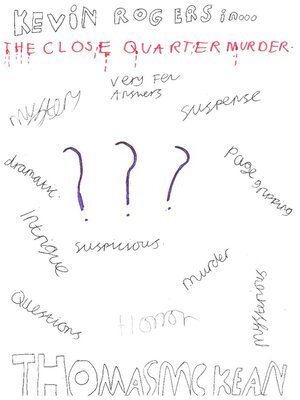 KEVIN ROGERS in...
THE CLOSE QUARTER MURDER.
very Few
Answers
mystery
suspense
dramatic.
? ? ?
page gripping
Intrigue
suspicious.
murder
Questions
Horror
mysterious
THOMAS MCKEAN